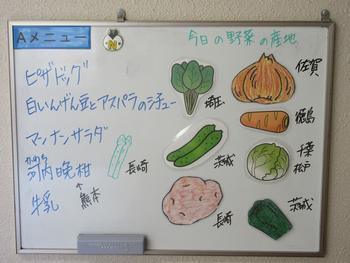 Aメニュー
今日の野菜の産地
ピザドッグ
白いんげん豆とアスパラのシチュー
マンナンサラダ
かわち
河内晩柑
牛乳
長崎
↑
熊本
埼玉
佐賀
徳島
茨城
千葉
松戸
長崎
茨城